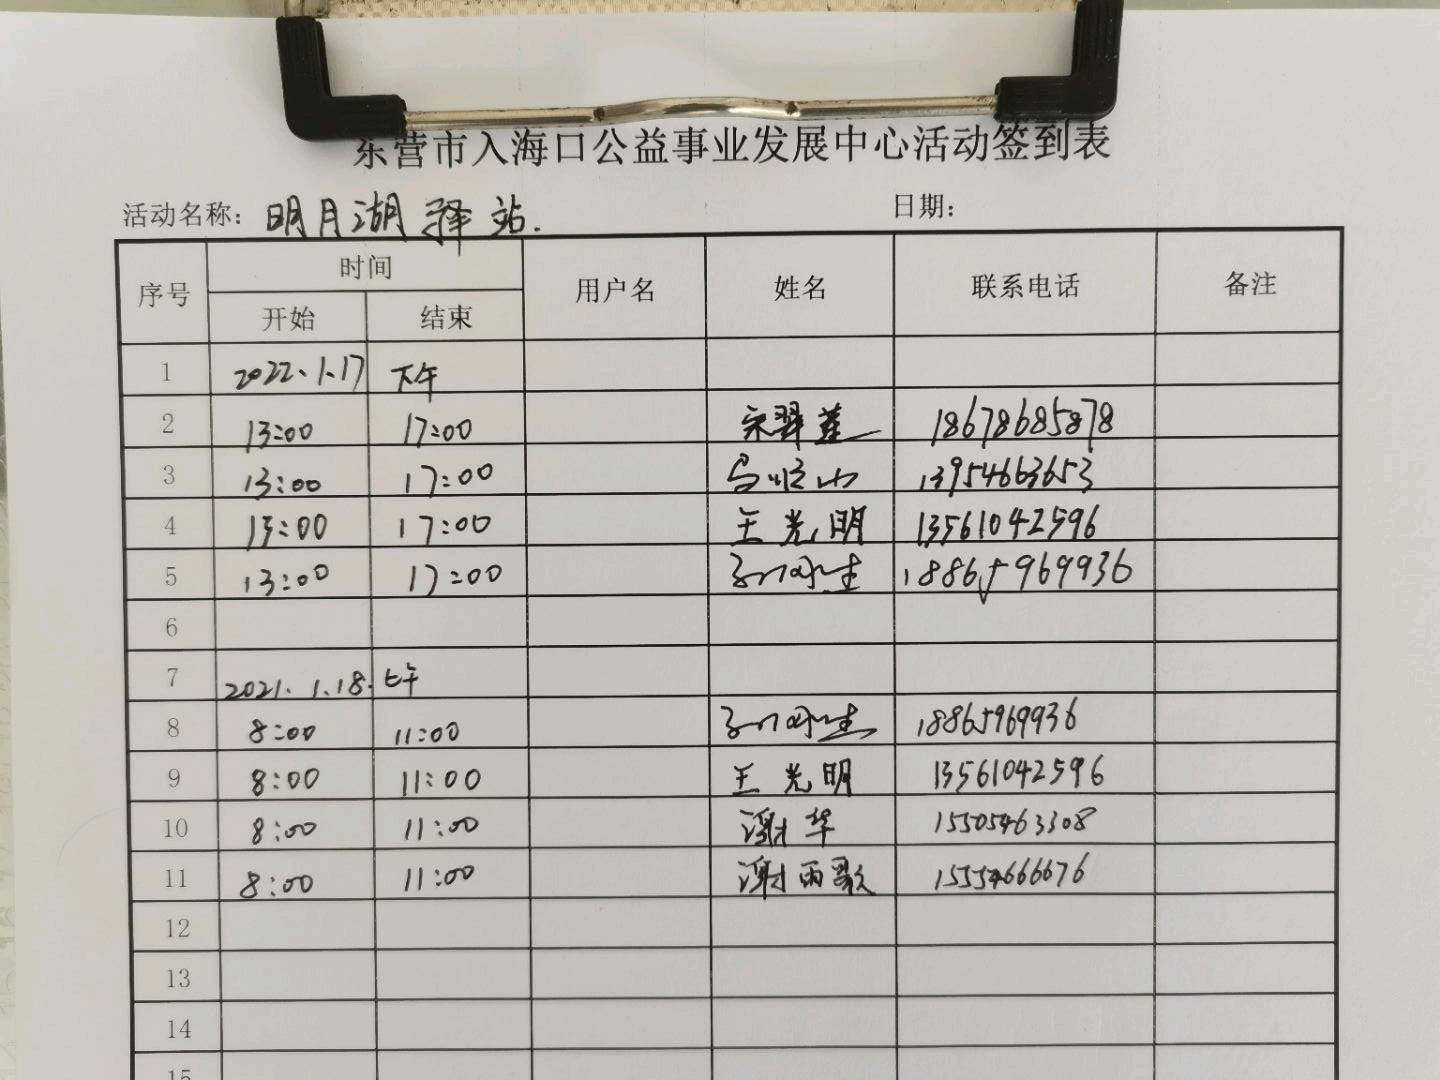 东营市入海口公益事业发展中心活动签到表
活动名称: 明月湖驿站. 日期:
序号 时间 用户名 姓名 联系电话 备注
开始 结束
1 2022.1.17 下午
2 13:00 17:00 18678685878
3 13:00 17:00 13954663653
4 13:00 17:00 王光明 13561042596
5 13:00 17:00 18865969936
6
7 2021.1.18. 上午
8 8:00 11:00 18865969936
9 8:00 11:00 王光明 13561042596
10 8:00 11:00 谢华 15505463308
11 8:00 11:00 谢雨歌 15554666676
12
13
14
15